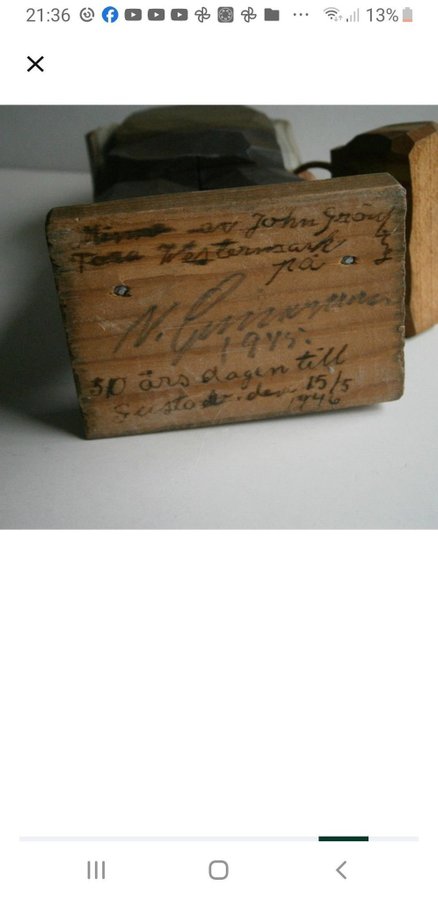 21:36 13%
av John Gröny
Tora Westermark
på
N.
1945.
50 års dagen till
den 15/5
1946